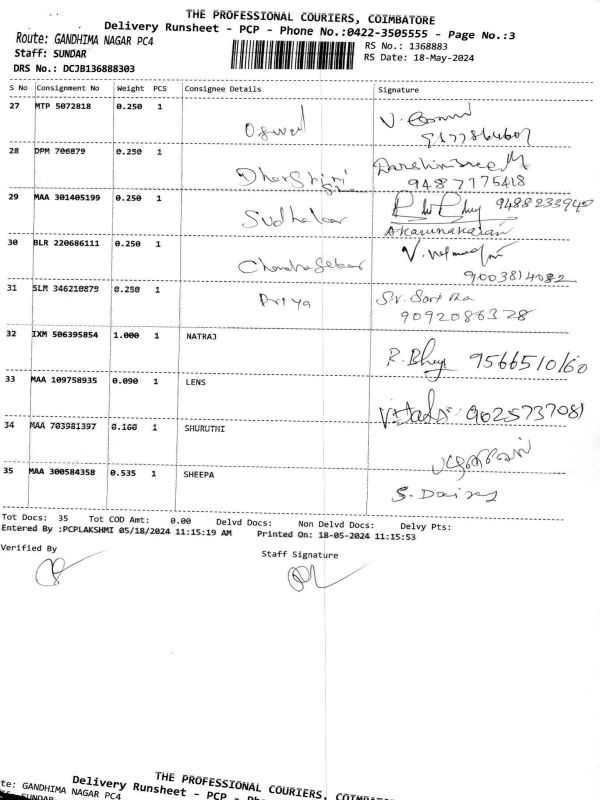 THE PROFESSIONAL COURIERS, COIMBATORE
Delivery Runsheet - PCP - Phone No.:0422-3505555 - Page No.:3
Route: GANDHIMA NAGAR PC4
RS No.: 1368883
Staff: SUNDAR
RS Date: 18-May-2024
DRS No.: DCJB136888303
S No Consignment No Weight PCS Consignee Details Signature
27 MTP 5072818 0.250 1 Oswal V.
28 DPM 706879 0.250 1 Dharshini
9487175418
29 MAA 301405199 0.250 1 Sudhakar 9488233940
A Karunakaran
30 BLR 220686111 0.250 1 Chandrasekar V.
9003814082
31 SLM 346210879 0.250 1 Priya
9092086328
32 IXM 506395854 1.000 1 NATRAJ R. Bhuy 9566510160
33 MAA 109758935 0.090 1 LENS 9025737081
34 MAA 703981397 0.160 1 SHURUTHI
35 MAA 300584358 0.535 1 SHEEPA S. Daisy
Tot Docs: 35 Tot COD Amt: 0.00 Delvd Docs: Non Delvd Docs: Delvy Pts:
Entered By :PCPLAKSHMI 05/18/2024 11:15:19 AM Printed On: 18-05-2024 11:15:53
Verified By
Staff Signature
THE PROFESSIONAL COURIERS,
Delivery Runsheet - PCP -
te: GANDHIMA NAGAR PC4
SUNDAR